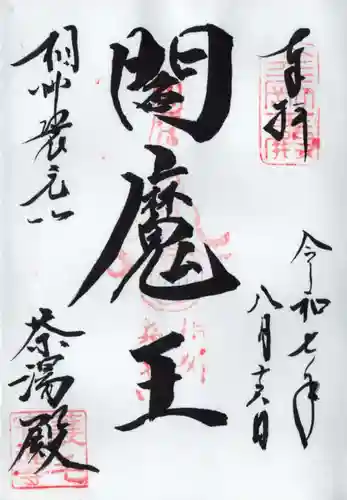 奉拝
令和七年
八月十六日
閻魔王
相州簑毛
茶湯殿